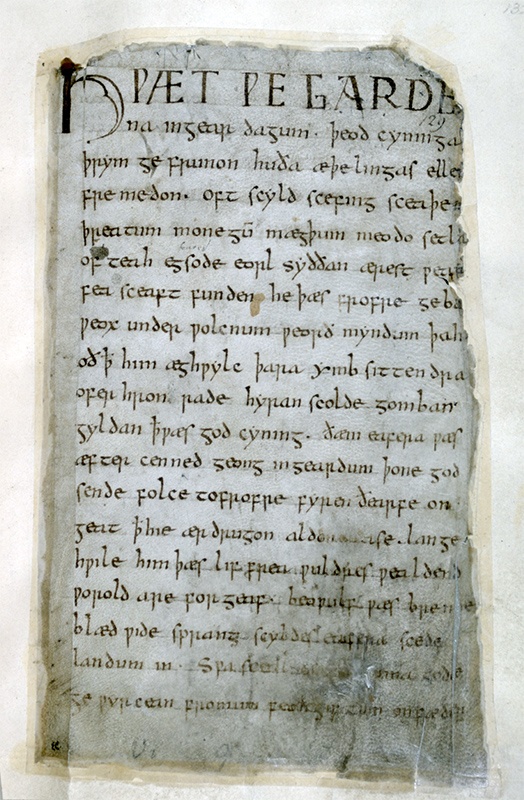 HǷÆT ǷE GARDE
129
na ingear dagum · þeod cyninga
þrym ge frunon huða æþelingas elle
fre medon. Oft scyld scefing sceaþe
þreatum monegū mægþum meodo setla
of teah egsode eorl syððan ærest
fea sceaft funden he þæs frofre geba
ƿeox under ƿolcnum ƿeorð myndum þah
oð ꝥ him æghƿylc þara ymb sittendra
ofer hron rade hyran scolde gomban
gyldan ꝥ ƿæs god cyning · ðæm eafera ƿæs
æfter cenned geong in geardum þone god
sende folce tofrofre fyren ðearfe on
geat ꝥ hie ær drugon aldor ase. lange
hƿile him þæs lif frea ƿuldres ƿealdend
ƿorold are for geaf. beoƿulf ƿæs breme
blæd ƿide sprang scyldes eafera scede
landum in. Sƿa sceal uma gode
ge ƿyrcean fromum feohgiftum on fæder